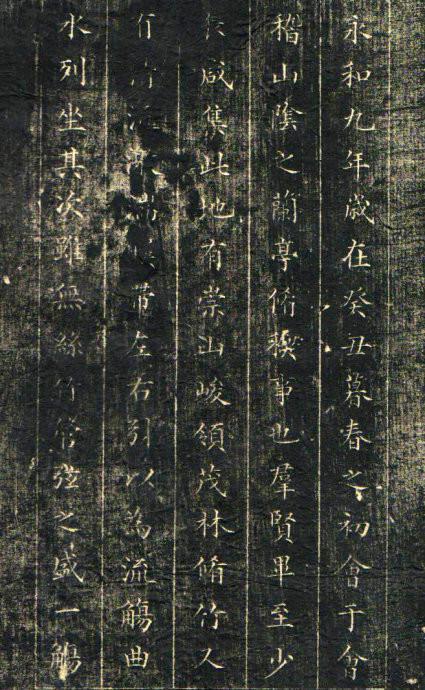 永和九年歲在癸丑暮春之初會于會
稽山陰之蘭亭脩禊事也羣賢畢至少
長咸集此地有崇山峻領茂林脩竹又
有清流激湍暎帶左右引以為流觴曲
水列坐其次雖無絲竹管弦之盛一觴